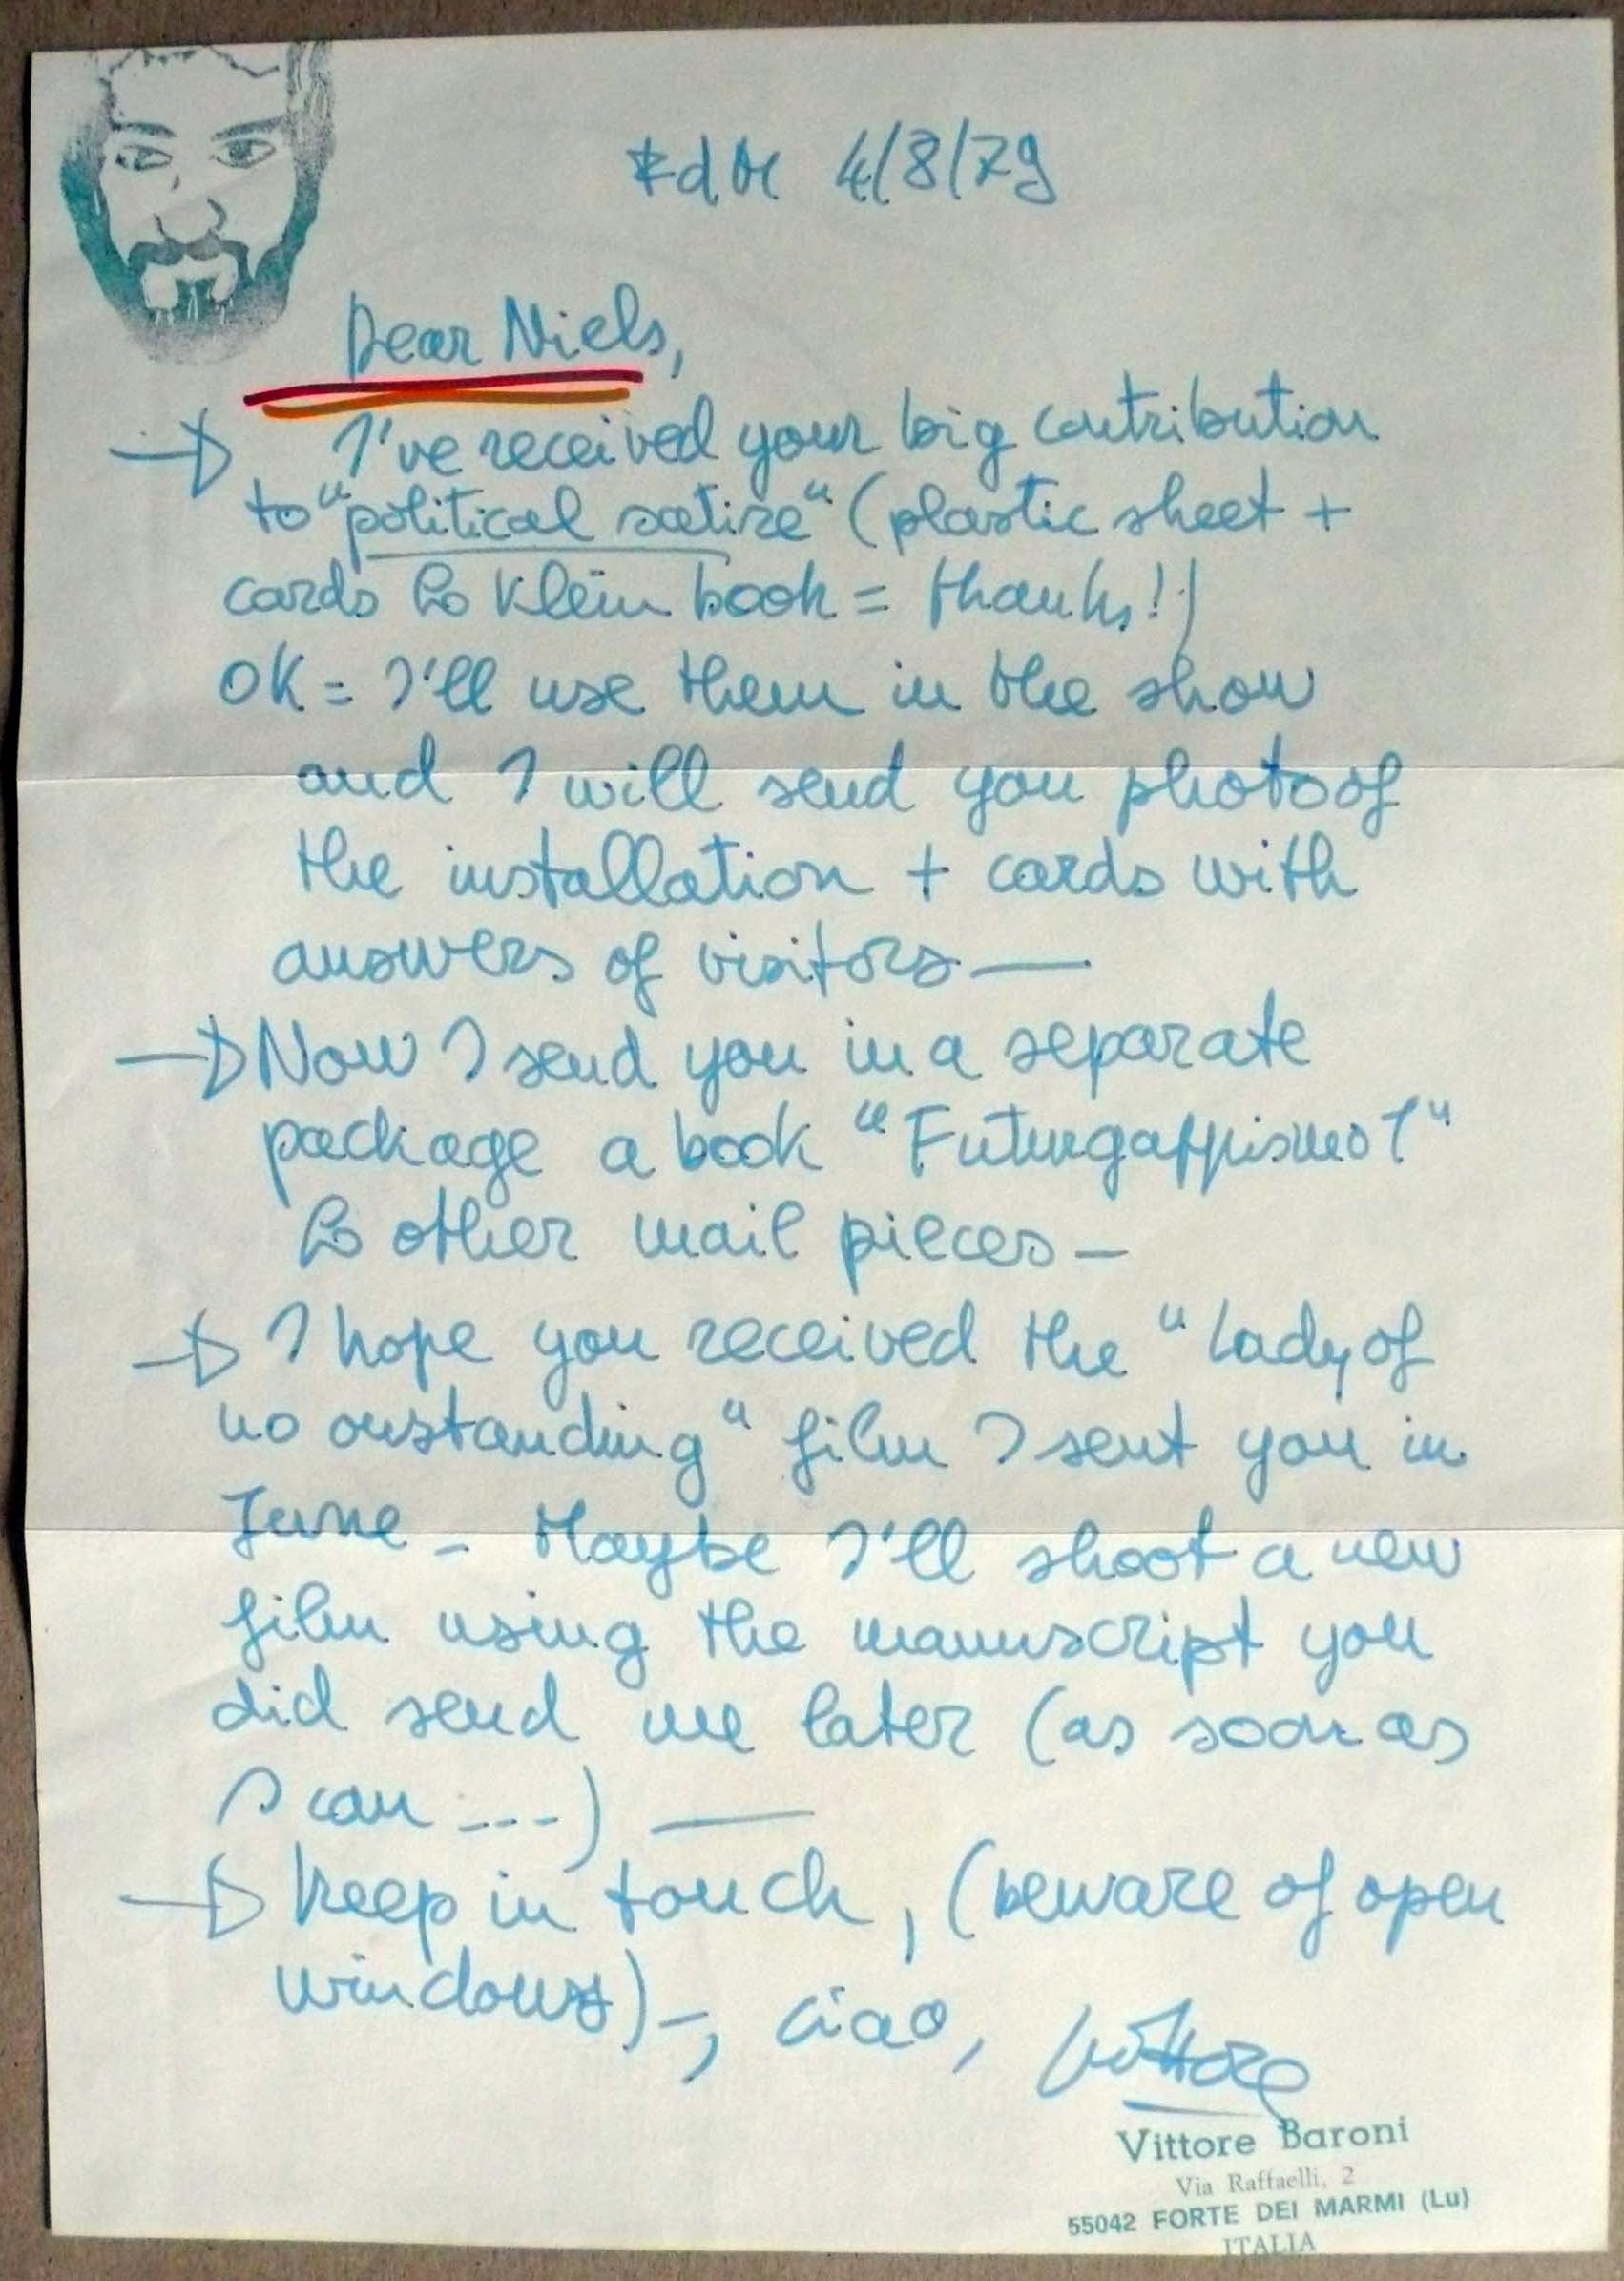 FdM 4/8/79
Dear Niels,
I've received your big contribution
to "political satire" (plastic sheet +
cards & Klein book = thanks!)
OK = I'll use them in the show
and I will send you photo of
the installation + cards with
answers of visitors —
Now I send you in a separate
package a book "Futurgappismo?"
& other mail pieces —
I hope you received the "Lady of
no oustanding" film I sent you in
June - Maybe I'll shoot a new
film using the manuscript you
did send me later (as soon as
I can ....) —
keep in touch, (beware of open
windows) -, ciao, Vittore
Vittore Baroni
Via Raffaelli, 2
55042 FORTE DEI MARMI (Lu)
ITALIA